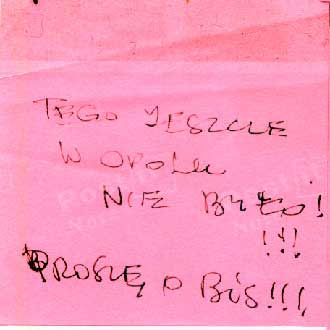 TEGO JESZCZE
W OPOLU
NIE BYŁO!
!!!
PROSZĘ O BIS!!!